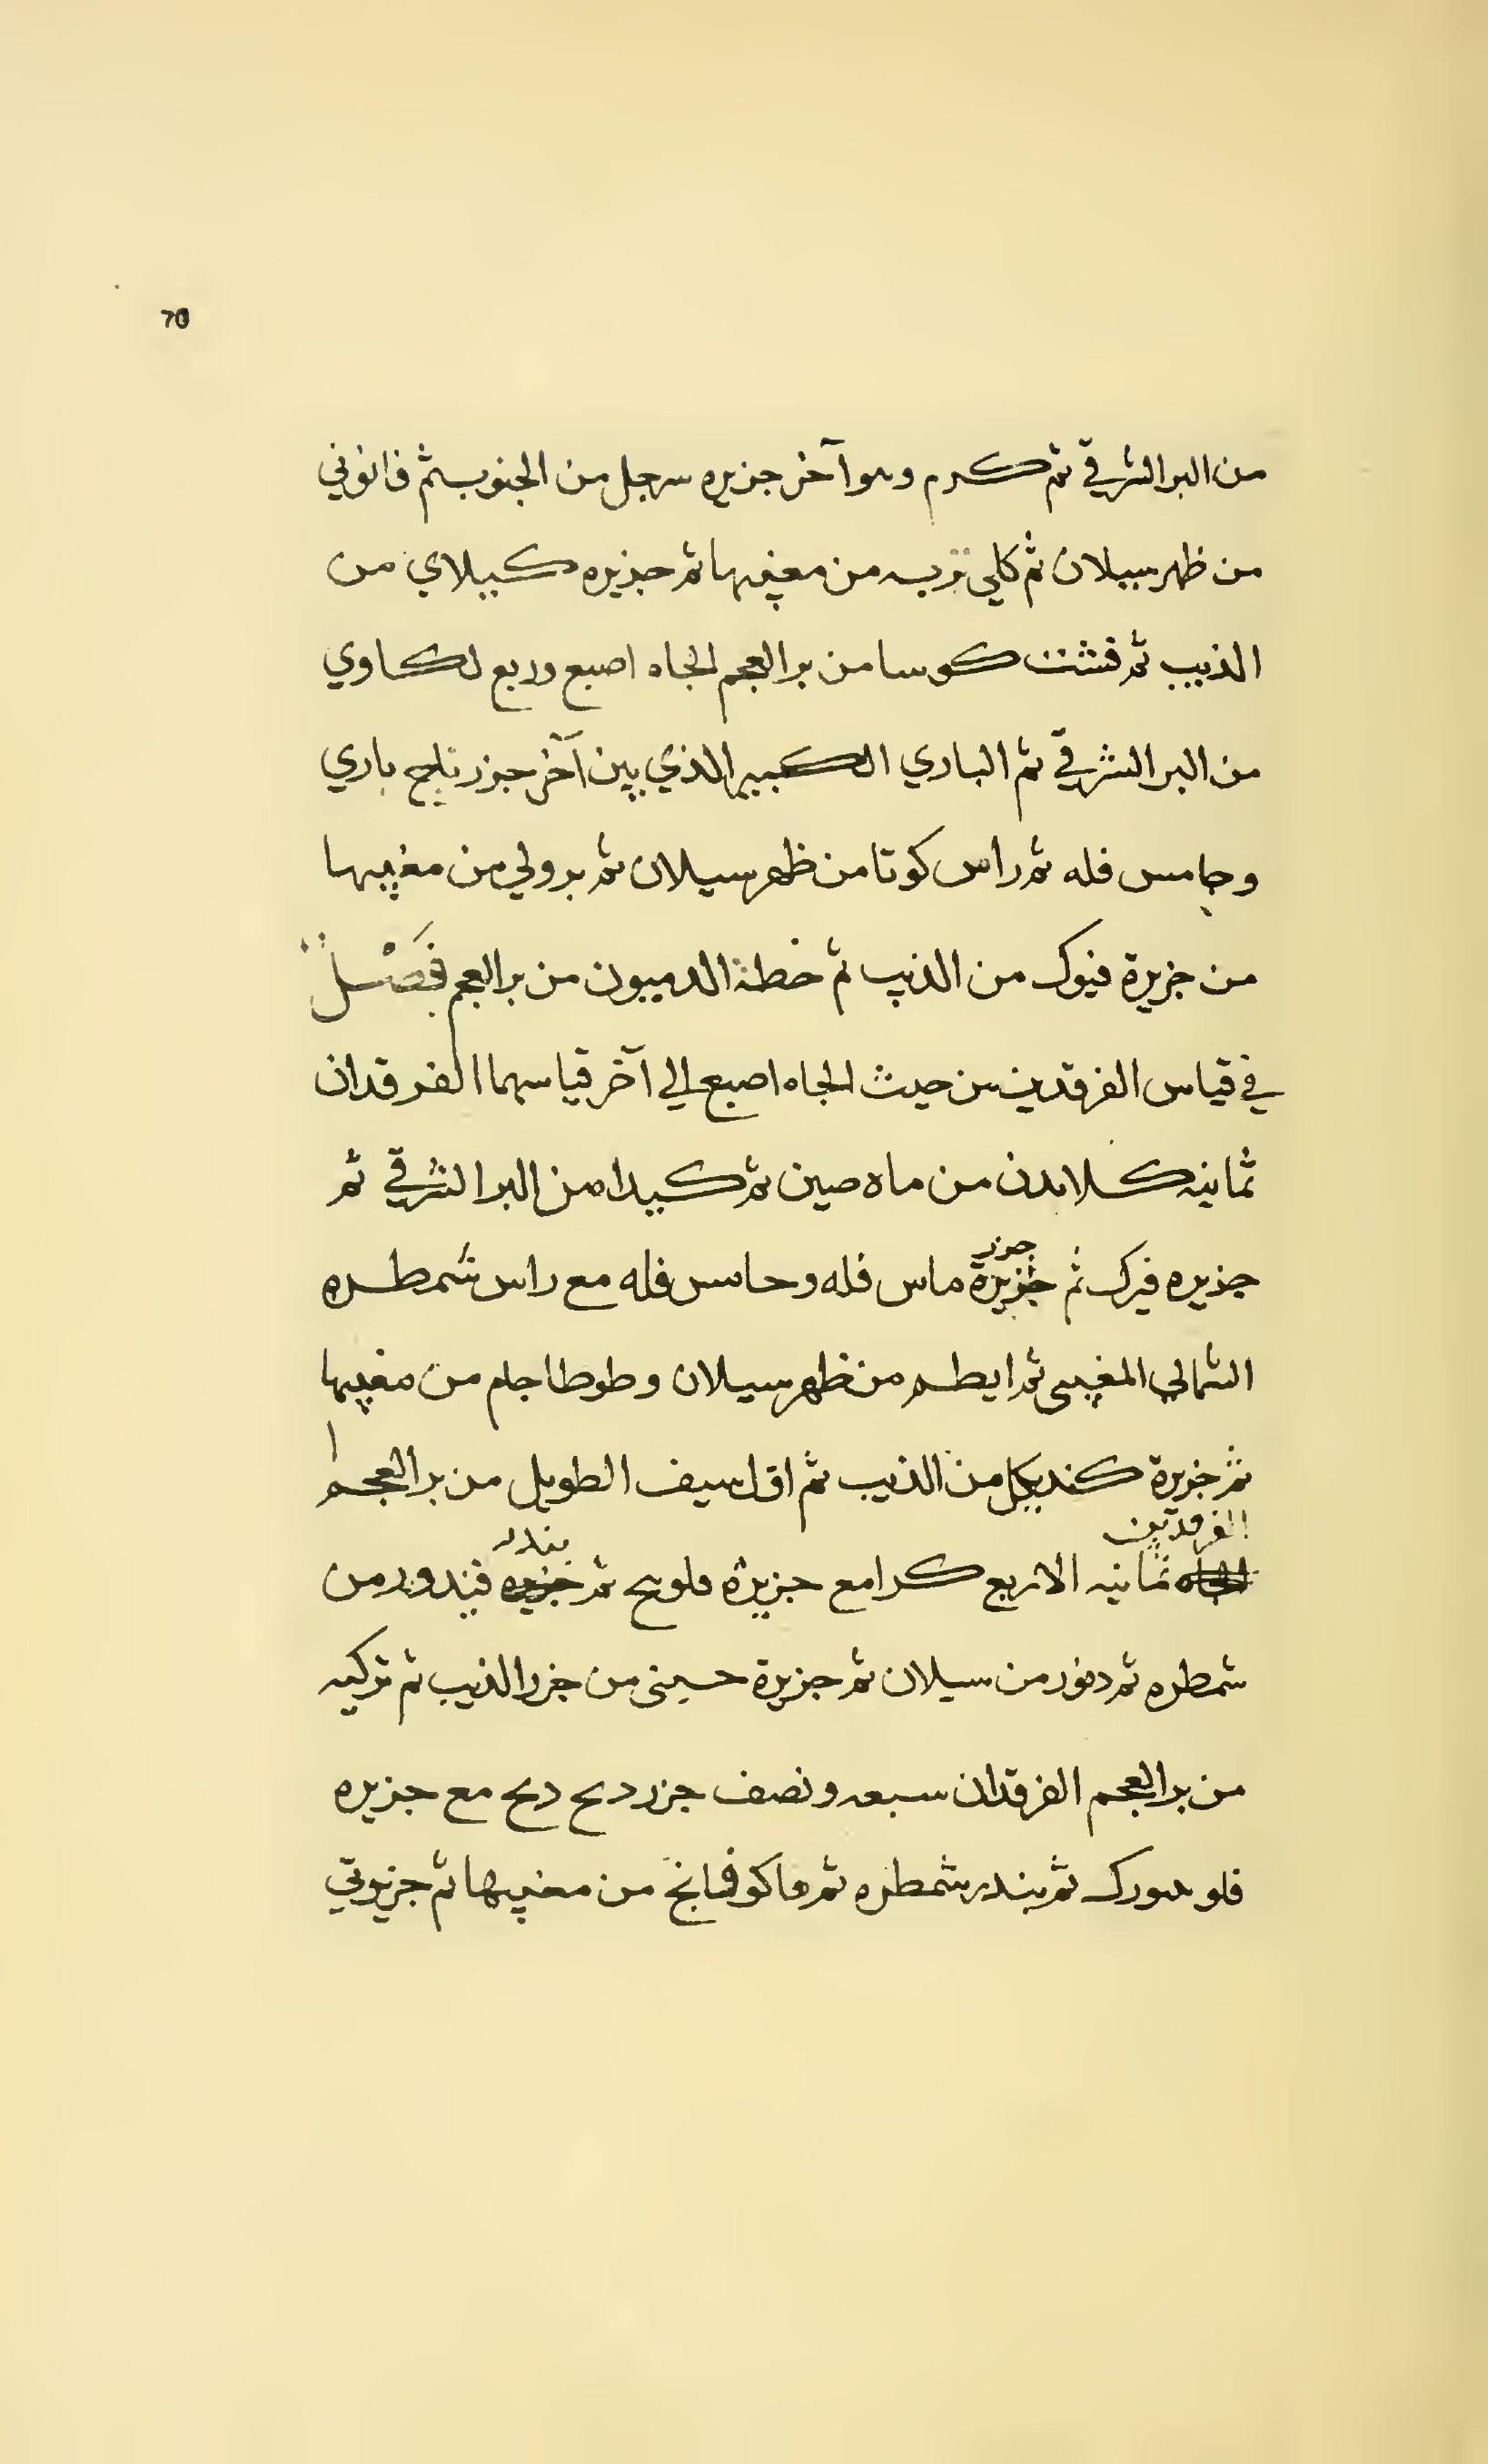 70
من البر الشرقي ثم كرم وهو آخر جزيره سرجل من الجنوب ثم فانوني
من ظهر سيلان ثم كلي تربه من مغيبها ثم جزيره كبيلاي من
الذيب ثم فشت كوسا من بر العجم الجاه اصبع وربع لكاوي
من البر الشرقي ثم الباري الكبير الذي بين آخر جزر ناج باري
وجامس فله ثم راس كوتا من ظهر سيلان ثم برولي من مغيبها
من جزيرة فيوك من الذيب ثم خطة الديبون من بر العجم فصل
في قياس الفرقدين من حيث الجاه اصبع الي آخر قياسهما الفرقدان
ثمانيه كلاندن من ماه صين ثم كيدا من البر الشرقي ثم
جزر
جزيره فيرك ثم جزيرة ماس فله وحامس فله مع راس شمطره
الشمالي المغيبي ثم ايطم من ظهر سيلان وطوطاجام من مغيبها
ثم جزيرة كنديكل من الذيب ثم اول سيف الطويل من بر العجم
الفرقدين بندر
الجاه ثمانيه الا ربع كرا مع جزيرة فلو بيج ثم جزيره فيدور من
شمطره ثم دنور من سيلان ثم جزيرة حسيني من جزر الذيب ثم تركيه
من بر العجم الفرقدان سبعه ونصف جزر ديح ديح مع جزيره
فلو هورك ثم بندر شمطره ثم ماكوفانج من مغيبها ثم جزيرتي